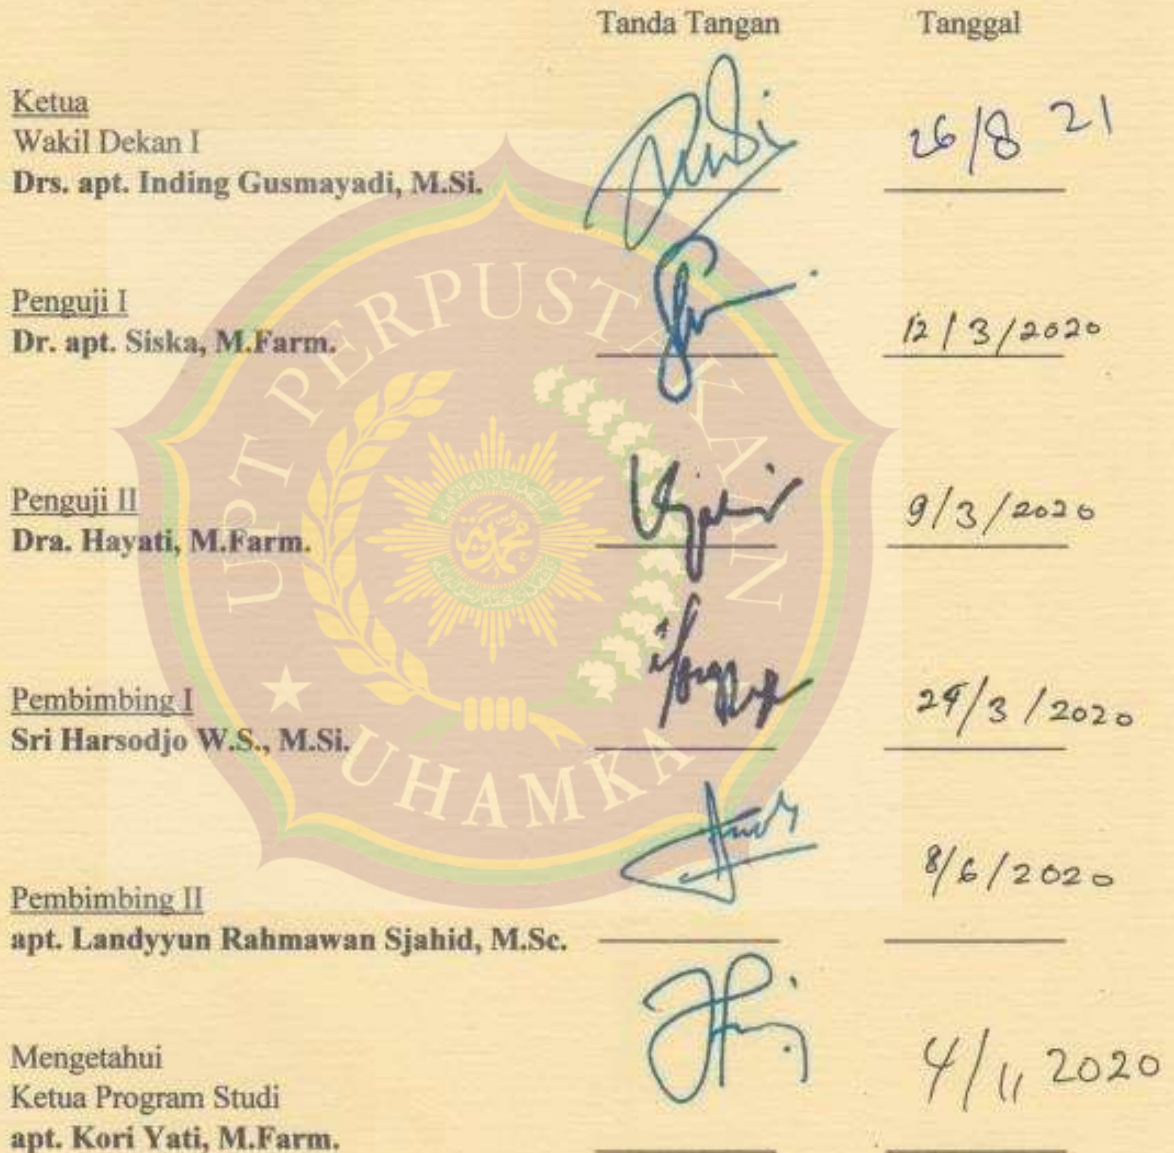 Tanda Tangan Tanggal
Ketua
Wakil Dekan I
Drs. apt. Inding Gusmayadi, M.Si. 26/8 21
Penguji I
Dr. apt. Siska, M.Farm. 12/3/2020
Penguji II
Dra. Hayati, M.Farm. 9/3/2020
Pembimbing I
Sri Harsodjo W.S., M.Si. /3/2020
Pembimbing II
apt. Landyyun Rahmawan Sjahid, M.Sc. 8/6/2020
Mengetahui
Ketua Program Studi
apt. Kori Yati, M.Farm. 4/11 2020
UPT PERPUSTAKAAN
UHAMKA